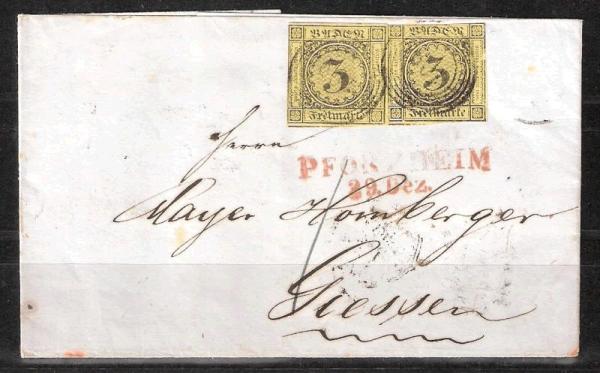 BADEN BADEN
3 3
Freimarke Freimarke
Herrn
PFORZHEIM
29. Dez.
Mayer Homberger
Giessen